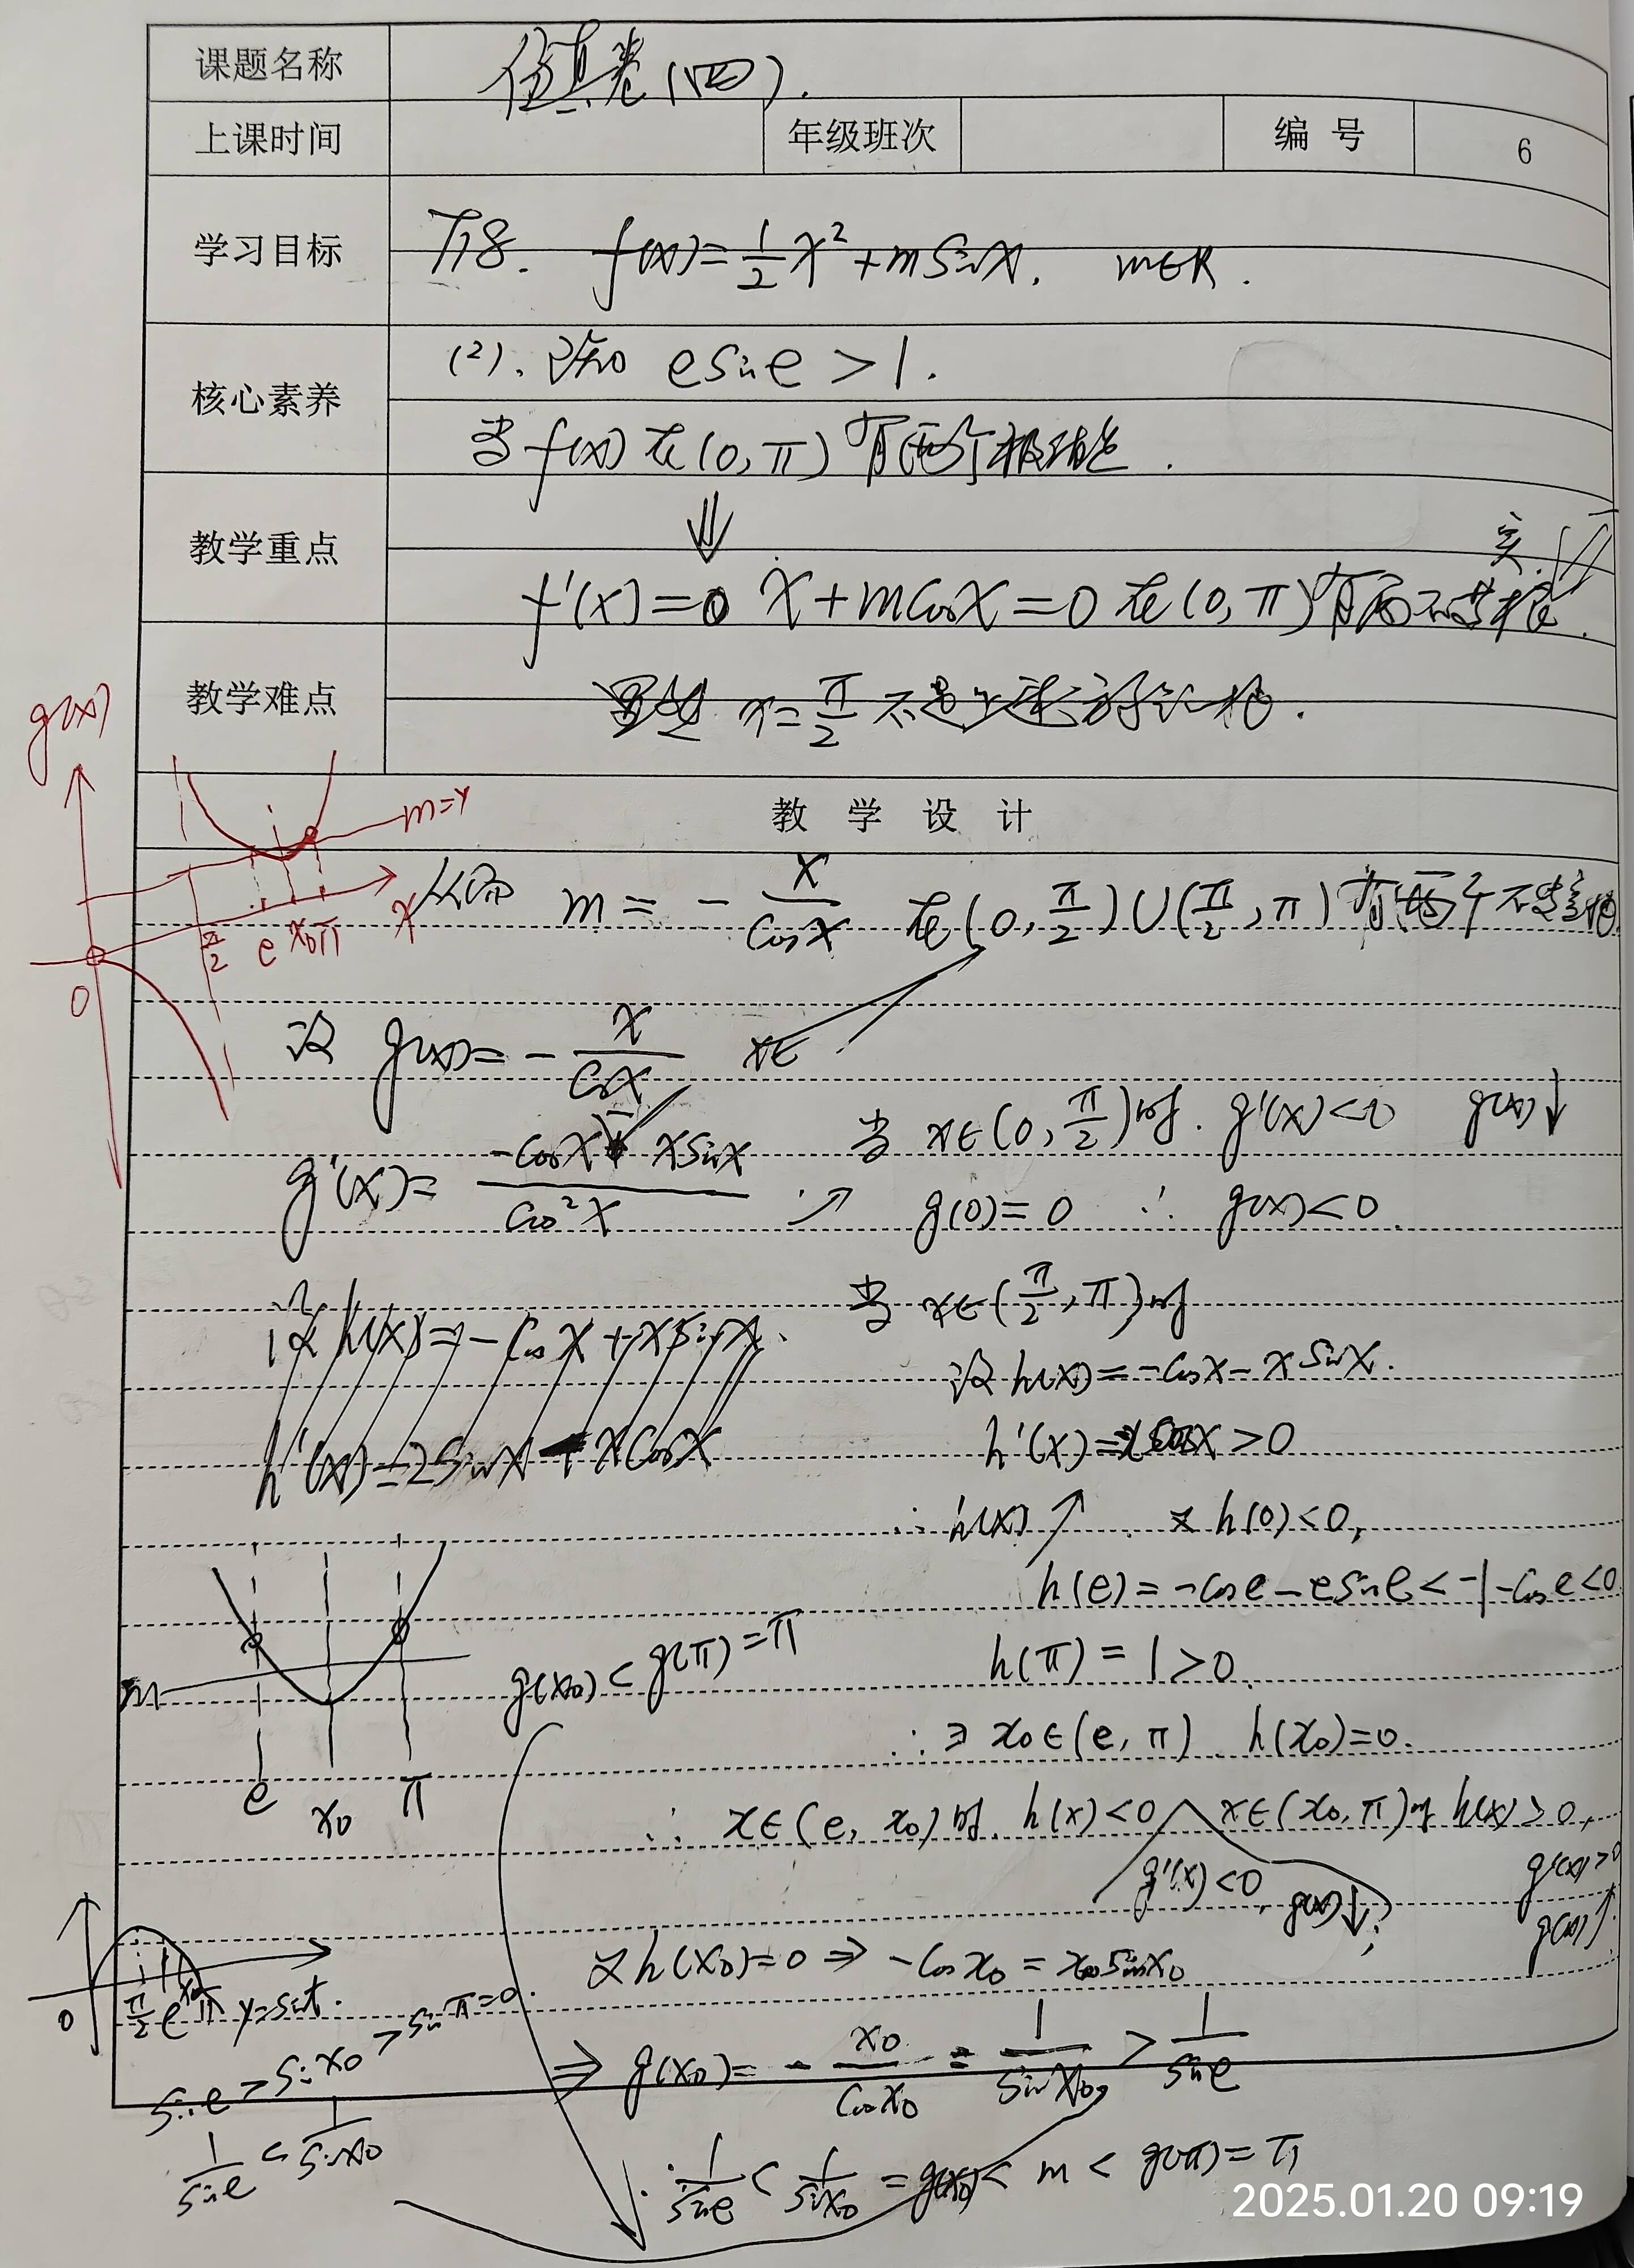 课题名称 仿真卷(四).
上课时间 年级班次 编 号 6
学习目标 T18. f(x)=1/2 x²+msinx. m∈R.
核心素养 (2). 已知 esine>1.
当f(x)在(0,π)有两个极值点.
⇓
教学重点 f'(x)=0 x+mcosx=0在(0,π)有两不等实根.
教学难点 显然 x=π/2 不是上述方程的根.
教 学 设 计
g(x)
m=y
x
π/2 e x₀ π
0
从而 m = - x/cosx 在(0,π/2)∪(π/2,π)有两个不等实根
设 g(x)= - x/cosx x∈
g'(x)= (-cosx - xsinx)/cos²x
当 x∈(0,π/2)时. g'(x)<0 g(x)↓
g(0)=0 ∴ g(x)<0.
设 h(x)=-cosx+xsinx.
h'(x)=2sinx+xcosx
当 x∈(π/2,π)时
设 h(x)=-cosx-xsinx.
h'(x)=-xcosx>0
∴ h(x)↗ 又 h(0)<0,
h(e)=-cose-esine<-1-cose<0
h(π)=1>0.
∴ ∃ x₀∈(e,π) h(x₀)=0.
m
e x₀ π
g(x₀)<g(π)=π
∴ x∈(e,x₀)时. h(x)<0 x∈(x₀,π)时 h(x)>0,
g'(x)<0, g(x)↓; g'(x)>0
g(x)↑.
又h(x₀)=0 ⇒ -cosx₀=x₀sinx₀
0 π/2 e x₀ π y=sint.
sine>sinx₀>sinπ=0.
1/sine<1/sinx₀
⇒ g(x₀)= - x₀/cosx₀ = 1/sinx₀ > 1/sine
∴ 1/sine<1/sinx₀=g(x₀)<m<g(π)=π
2025.01.20 09:19